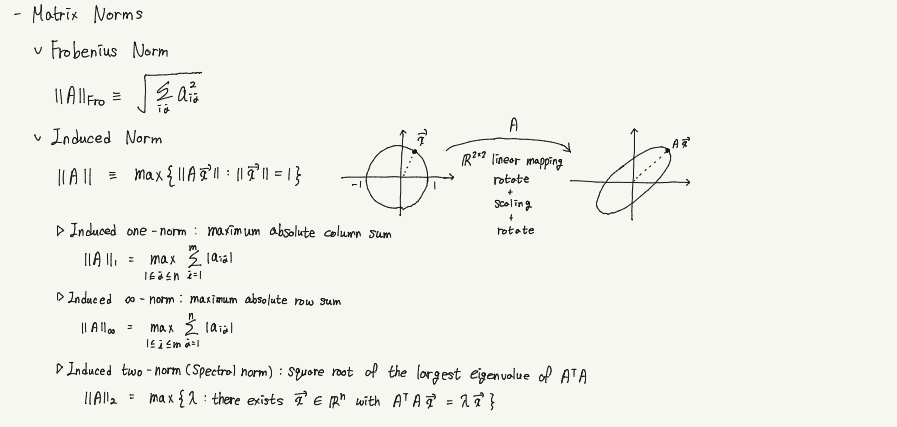 - Matrix Norms
∨ Frobenius Norm
||A||Fro ≡ √(∑ij aij²)
∨ Induced Norm
||A|| ≡ max{||Ax⃗|| : ||x⃗|| = 1}
x⃗
-1 1
A
ℝ²ˣ² linear mapping
rotate
+
scaling
+
rotate
Ax⃗
▷ Induced one-norm : maximum absolute column sum
||A||₁ = max 1≤j≤n ∑ i=1 m |aij|
▷ Induced ∞-norm : maximum absolute row sum
||A||∞ = max 1≤i≤m ∑ j=1 n |aij|
▷ Induced two-norm (Spectral norm) : square root of the largest eigenvalue of AᵀA
||A||₂ = max{λ : there exists x⃗ ∈ ℝⁿ with AᵀAx⃗ = λx⃗}